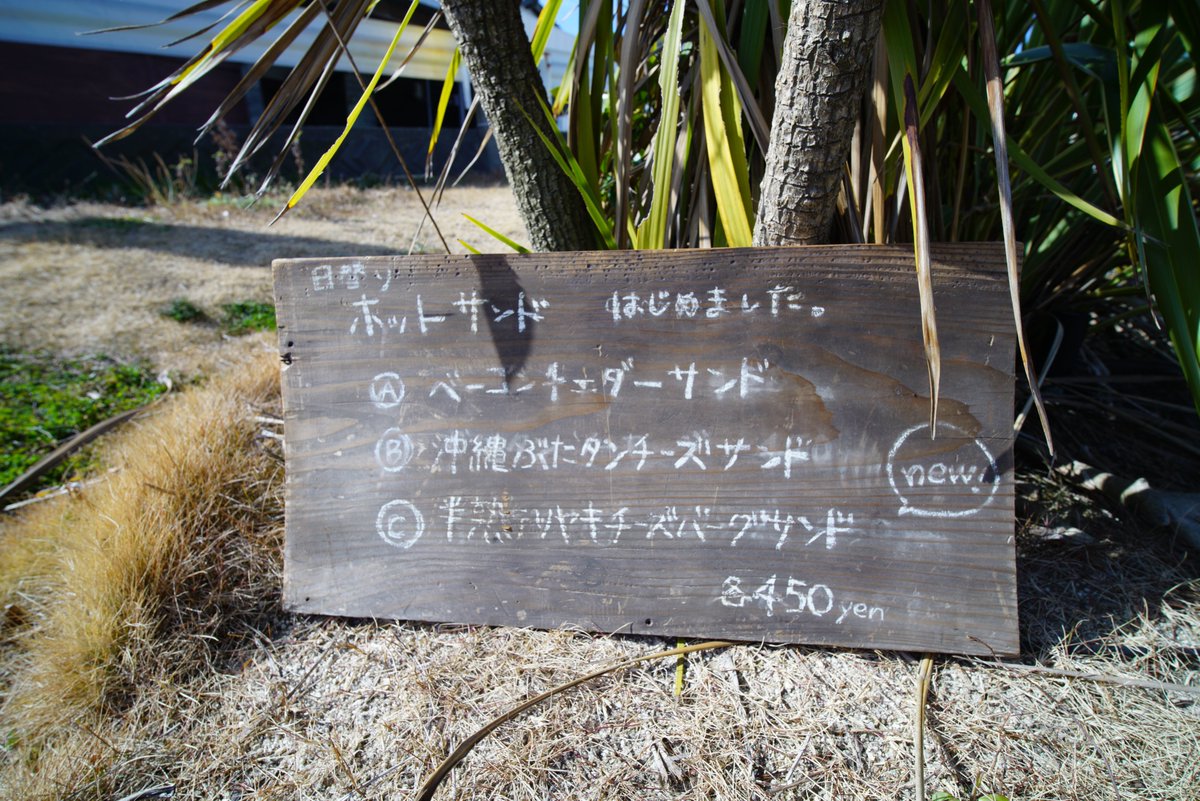 日替り
ホットサンド はじめました。
Ⓐ ベーコンチェダーサンド
Ⓑ 沖縄ぶたタンチーズサンド
new!
Ⓒ 半熟てりヤキチーズバーグサンド
各450yen